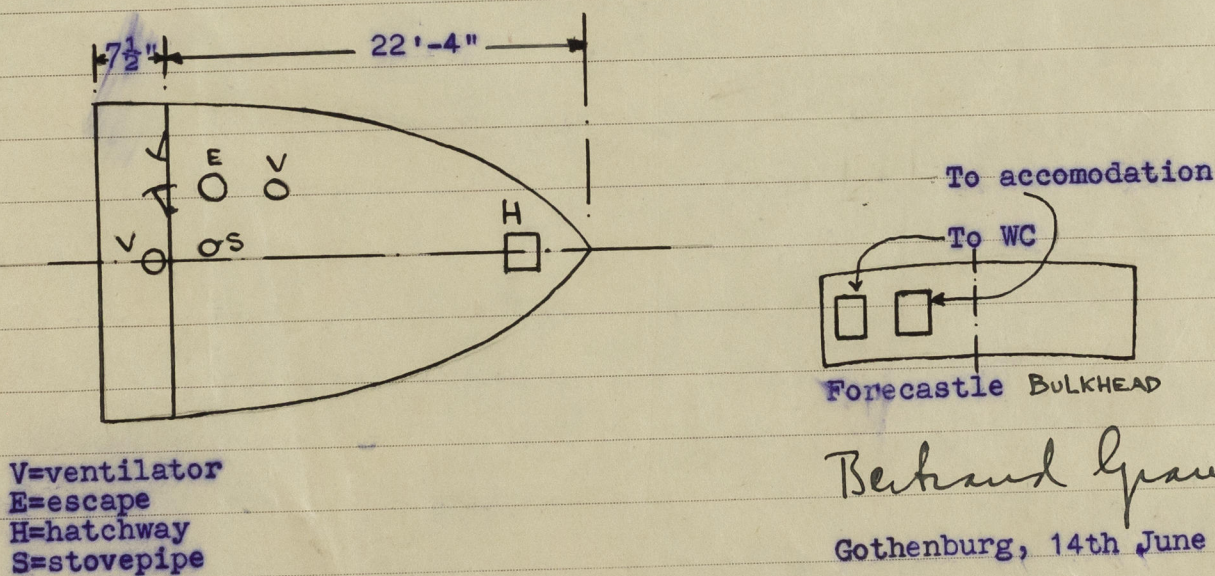 7½" 22'-4"
E V
H
V S
To accomodation
To WC
Forecastle BULKHEAD
V=ventilator
E=escape
H=hatchway
S=stovepipe
Bertrand
Gothenburg, 14th June